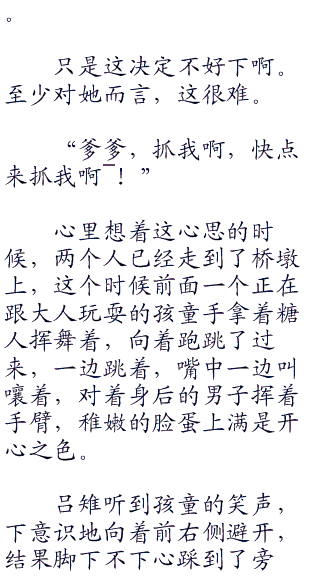 。
只是这决定不好下啊。
至少对她而言，这很难。
“爹爹，抓我啊，快点
来抓我啊~！”
心里想着这心思的时
候，两个人已经走到了桥墩
上，这个时候前面一个正在
跟大人玩耍的孩童手拿着糖
人挥舞着，向着跑跳了过
来，一边跳着，嘴中一边叫
嚷着，对着身后的男子挥着
手臂，稚嫩的脸蛋上满是开
心之色。
吕雉听到孩童的笑声，
下意识地向着前右侧避开，
结果脚下不下心踩到了旁